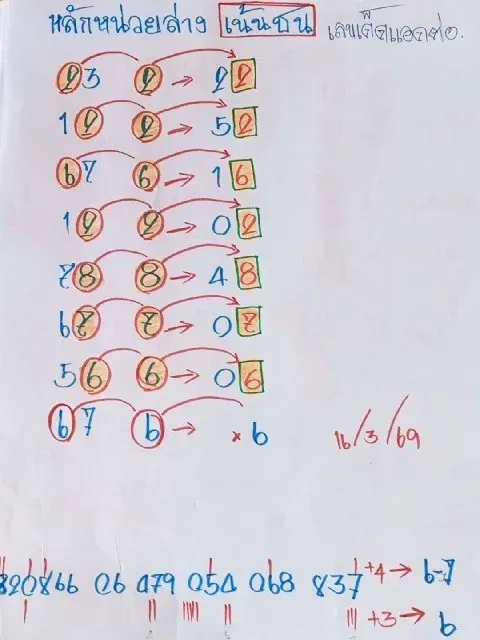 หลักหน่วยล่าง เน้นชน เลขเด็ดแอดต่อ.
23 2 → 22
12 2 → 52
67 6 → 16
12 2 → 02
78 8 → 48
67 7 → 07
56 6 → 06
67 6 → × 6
16/3/69
820866 26 479 054 068 837 +4 → 6-7
+3 → 6